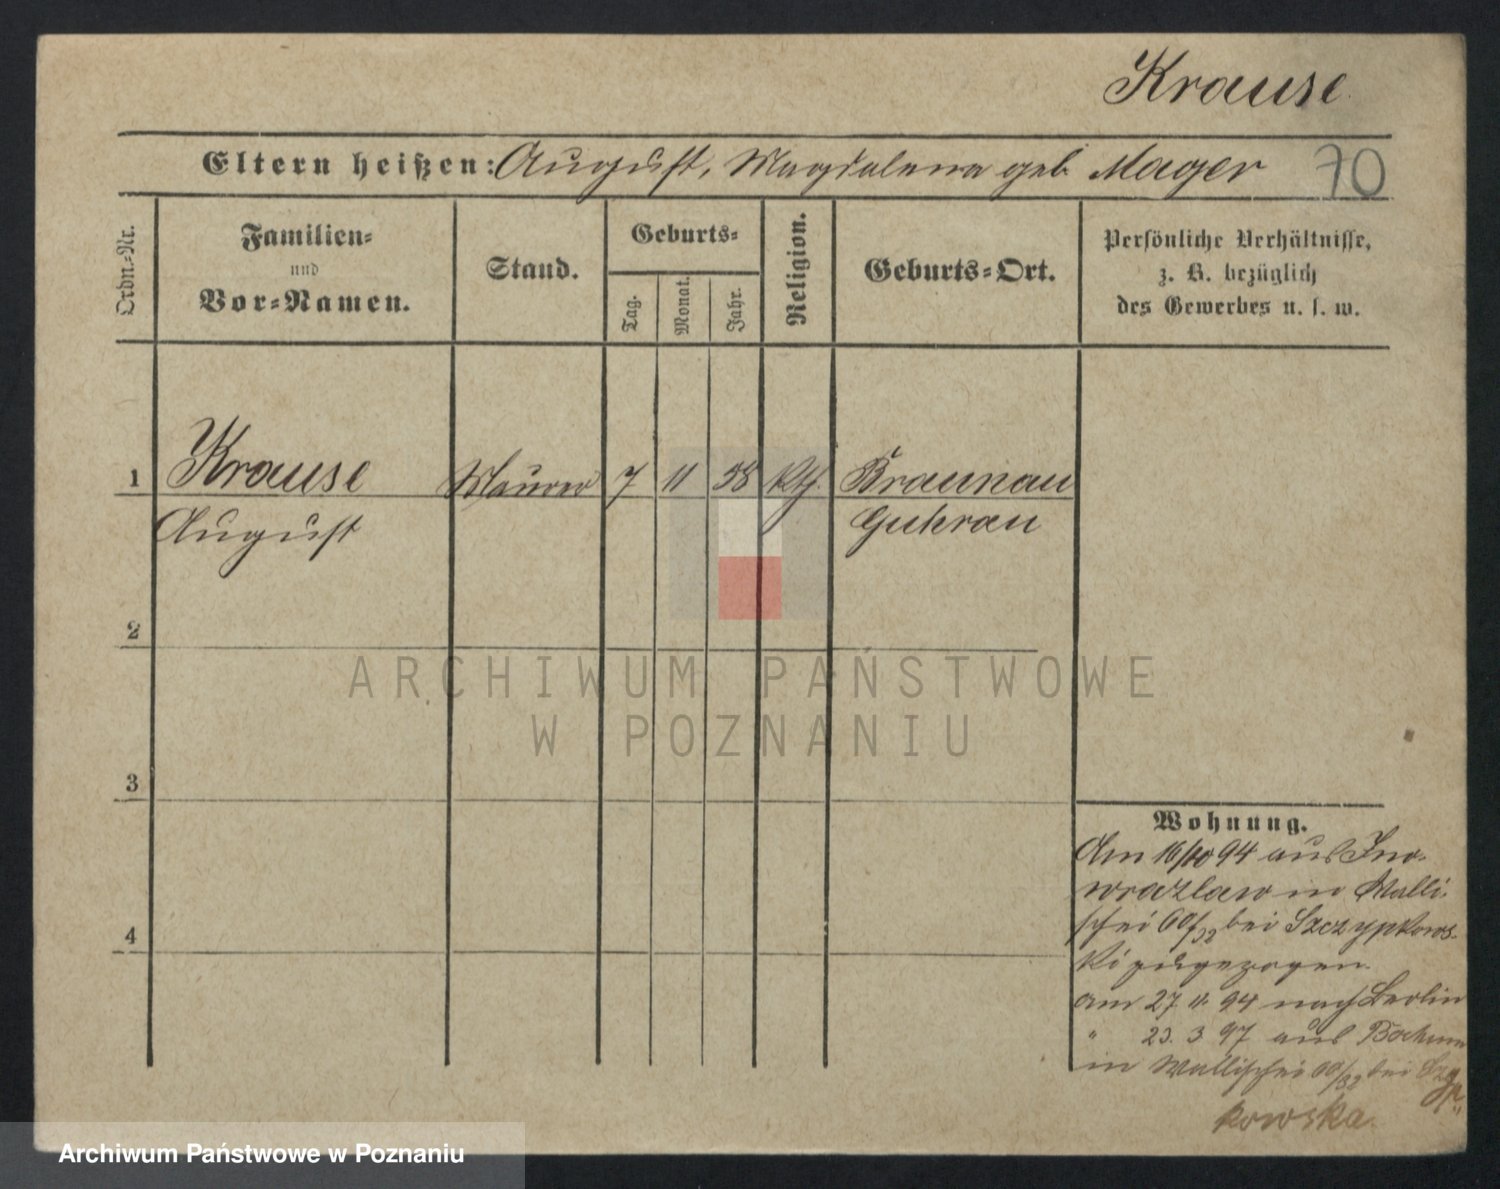 Krause.
Eltern heißen: August, Magdalena geb. Mager 70
Ordn.-Nr.
Familien-
und
Vor-Namen.
Stand.
Geburts-
Tag.
Monat.
Jahr.
Religion.
Geburts-Ort.
Persönliche Verhältnisse,
z. B. bezüglich
des Gewerbes u. s. w.
1 Krause Maurer 7 11 58 Kth. Braunau
August Guhrau
2
3
4
ARCHIWUM PAŃSTWOWE
W POZNANIU
Wohnung.
Am 16/10 94 aus Ino-
wrazlaw in Walli-
schei 60/32 bei Szczypkows-
ki zugezogen.
am 27. 11. 94 nach Berlin
" 23. 3. 97 aus Bochum
in Wallischei 60/32 bei
kowska.
Archiwum Państwowe w Poznaniu